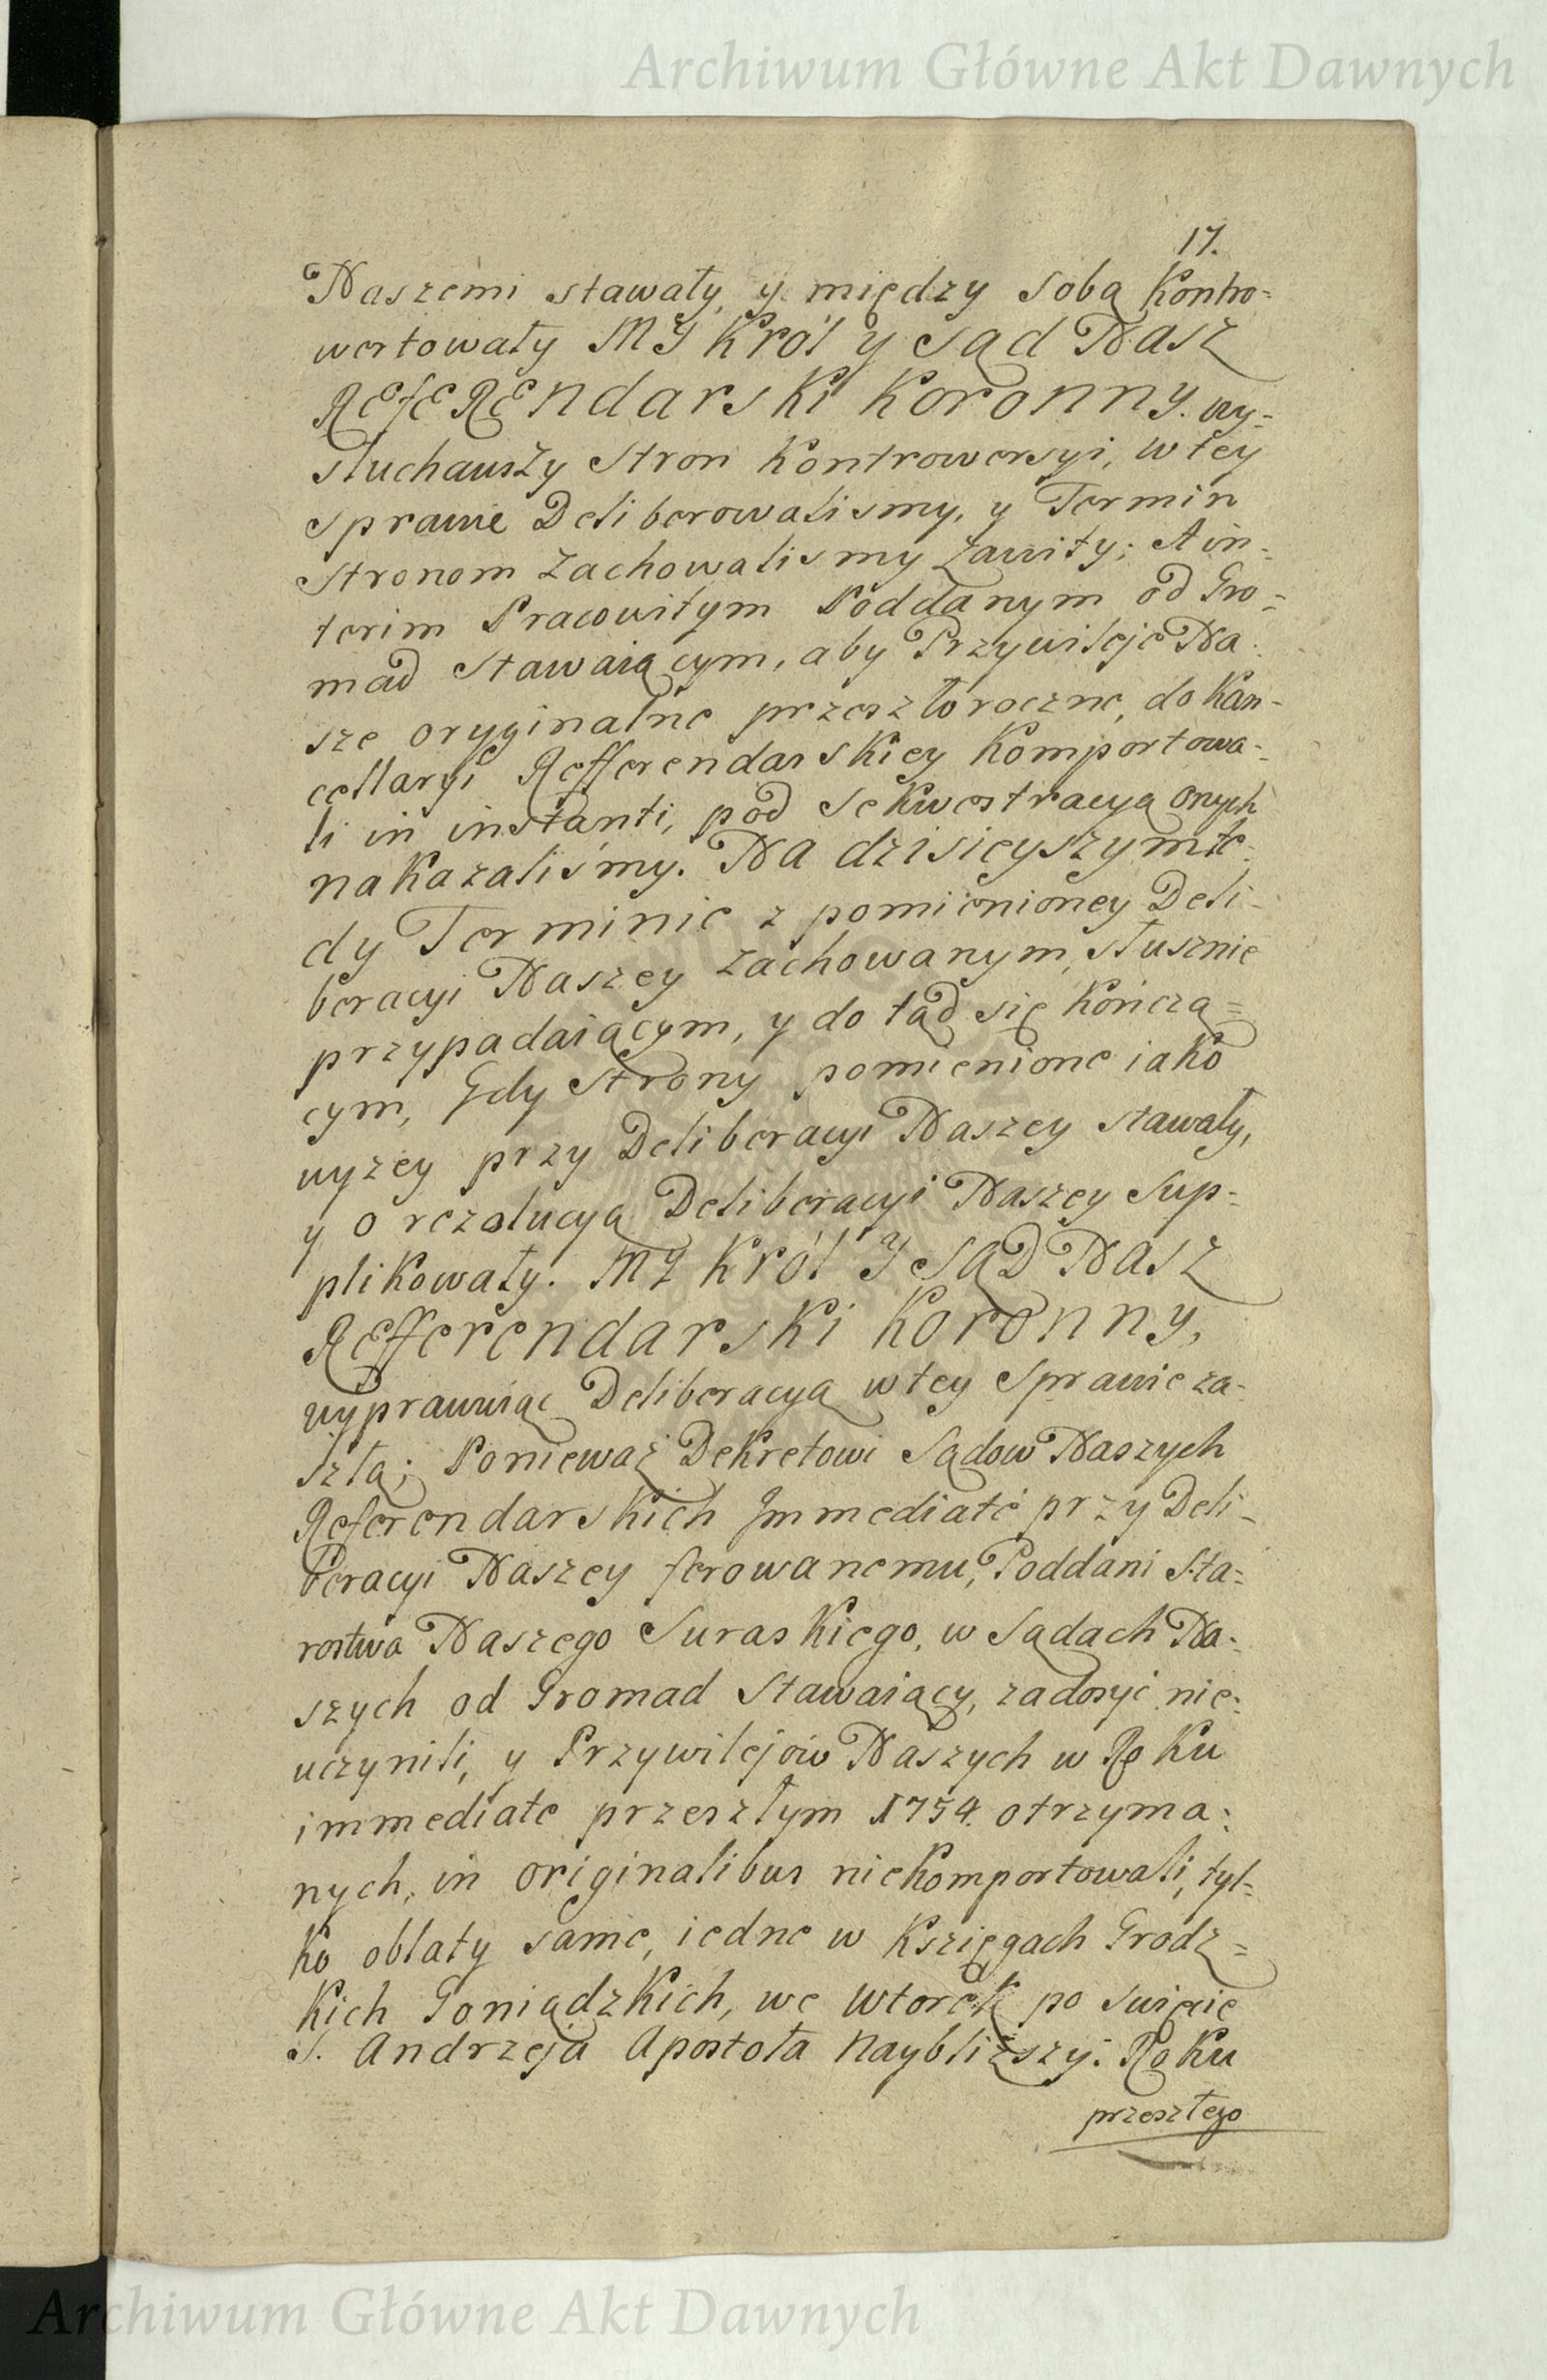 Archiwum Główne Akt Dawnych
17.
Naszemi stawały, y między sobą Kontro=
wertowały MY Król y Sąd Nasz
RefeREndarski Koronny. wy=
słuchawszy Stron Kontrowersyi, w tey
Sprawie Deliberowalismy, y Termin
Stronom zachowalismy Zawity; A in=
terim Pracowitym Poddanym od Gro=
mad Stawaiącym, aby Przywileje Na=
sze oryginalne przeszłoroczne, do Kan=
cellaryi Refferendarskiey Komportowa=
li in instanti, pod Sekwestracyą onych
nakazaliśmy. Na dzisieyszym te=
dy Terminie z pomienioney Deli=
beracyi Naszey zachowanym, słusznie
przypadaiącym, y do tąd się Kończą=
cym, Gdy Strony pomienione iako
wyżey przy Deliberacyi Naszey stawały,
y o rezolucyą Deliberacyi Naszey Sup=
plikowały. MY Król Y SĄD Nasz
Refferendarski Koronny,
wyprawuiąc Deliberacyą w tey Sprawie za=
szłą; Ponieważ Dekretowi Sądow Naszych
Referendarskich Immediatè przy Deli=
beracyi Naszey ferowanemu, Poddani Sta=
rostwa Naszego Suraskiego, w Sądach Na=
szych od Gromad Stawaiący, zadosyć nie=
uczynili, y Przywilejów Naszych w Roku
immediate przeszłym 1754. otrzyma=
nych, in originalibus niekomportowali, tyl=
ko oblaty same, iedne w Księgach Grodz=
kich Goniądzkich, we wtorek po Swięcie
S. Andrzeja Apostoła Naybliższy. Roku
przeszłego
Archiwum Główne Akt Dawnych